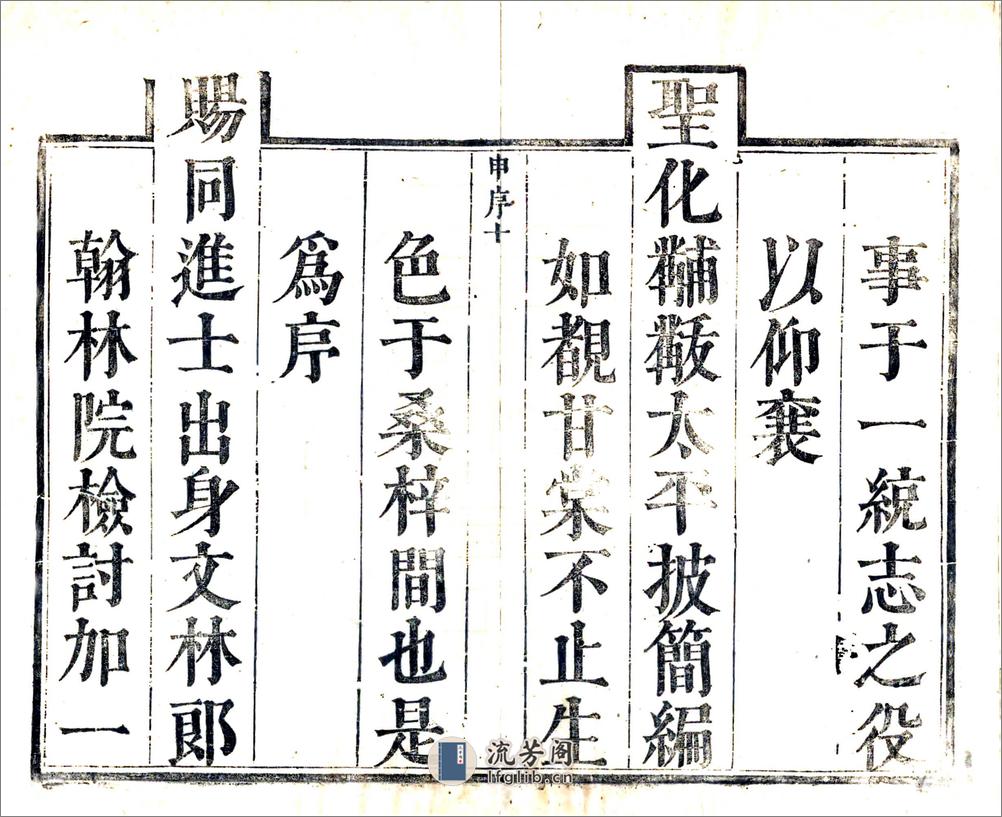 事于一統志之役
以仰襄
聖化黼黻太平披簡編
如覩甘棠不止生
申序十
色于桑梓間也是
爲序
賜同進士出身文林郎
翰林院檢討加一
流芳阁
lfglib.cn